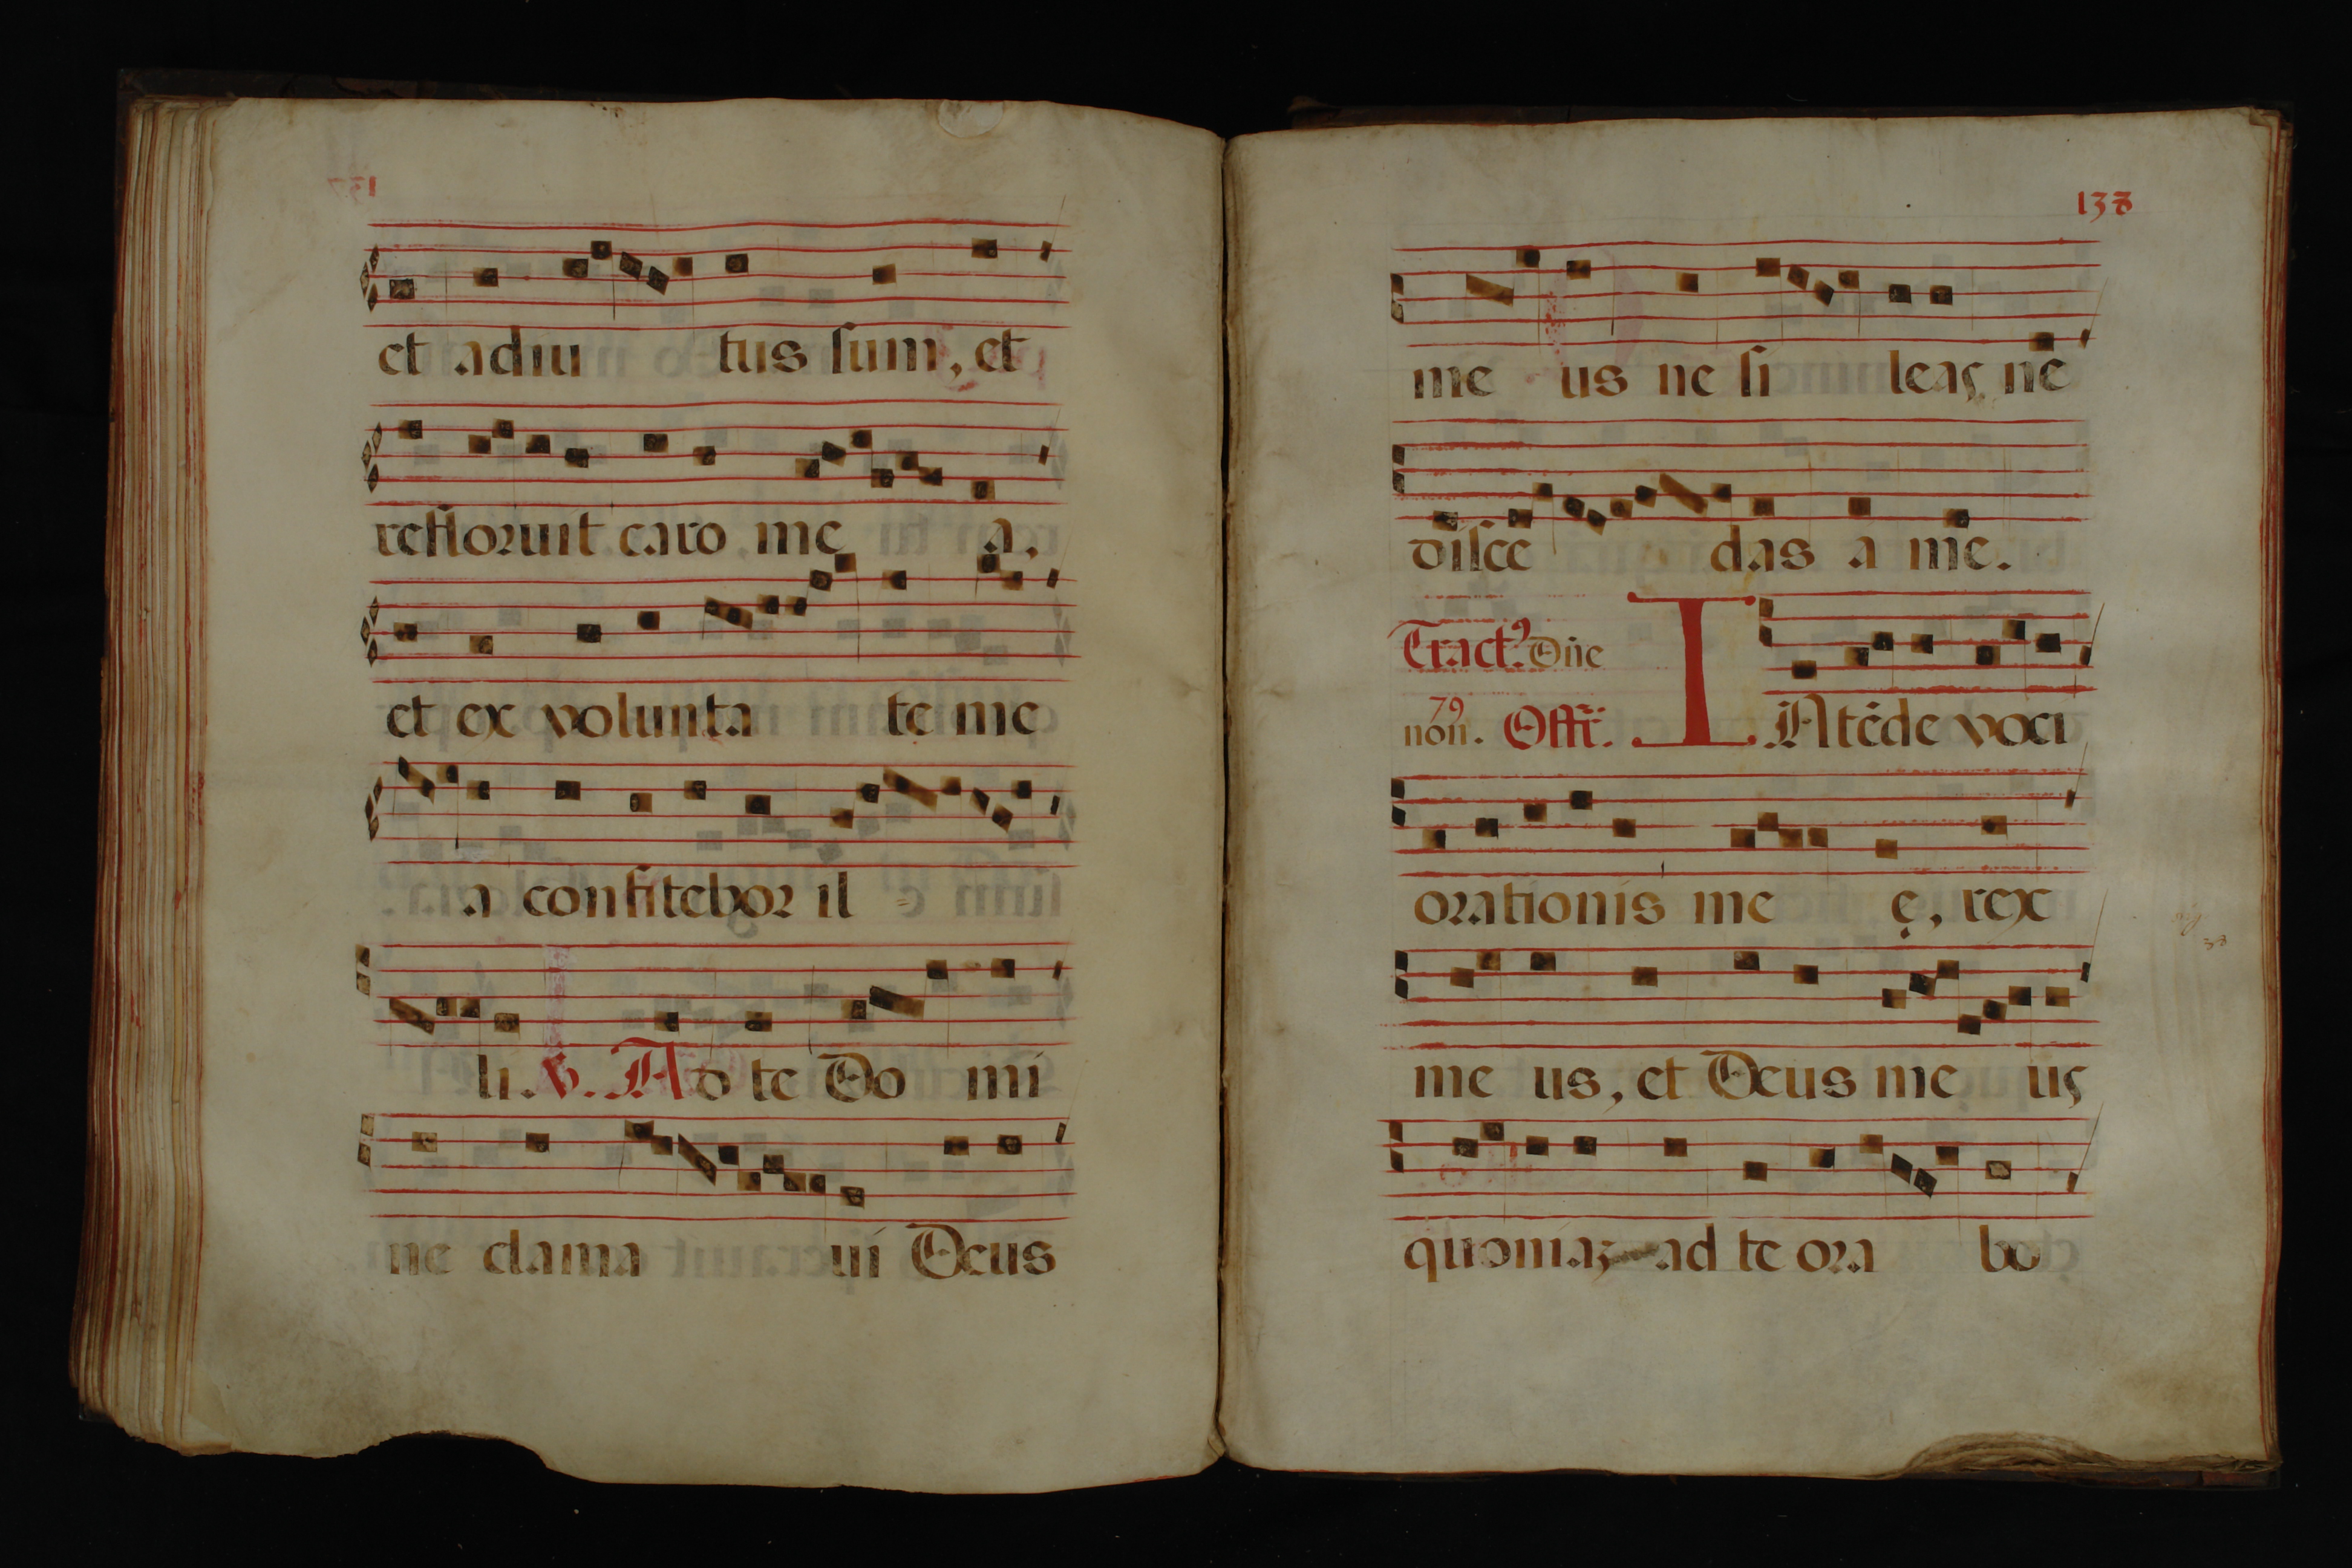 et adiu tus sum, et
refloruit caro me a,
et ex volunta te me
a confitebor il
li. V. Ad te Do mi
ne clama ui Deus
138
me us ne si leas ne
disce das a me.
Tract9. Dñe
79
non. Offr̃. I Ntẽde voci
orationis me ę, rex
me us, et Deus me us
quoniaz ad te ora bo